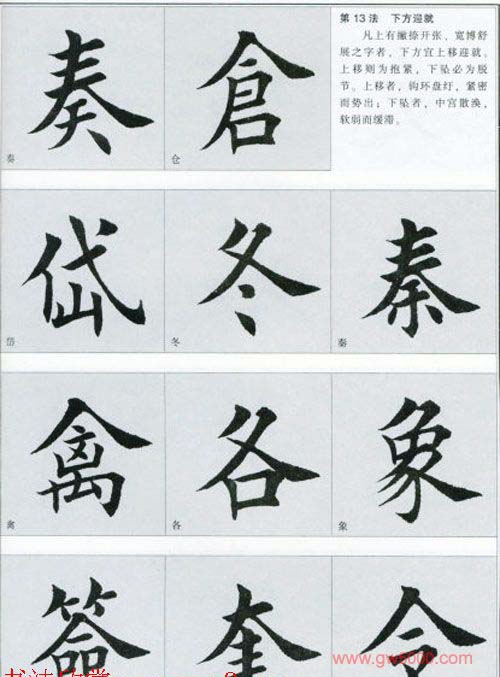 第13法 下方迎就
凡上有撇捺开张、宽博舒
展之字者，下方宜上移迎就。
上移则为抱紧，下坠必为脱
节。上移者，钩环盘纡，紧密
而势出；下坠者，中宫散涣，
软弱而缓滞。
奏 倉
奏 仓
岱 冬 秦
岱 冬 秦
禽 各 象
禽 各 象
奎 令
书法欣赏